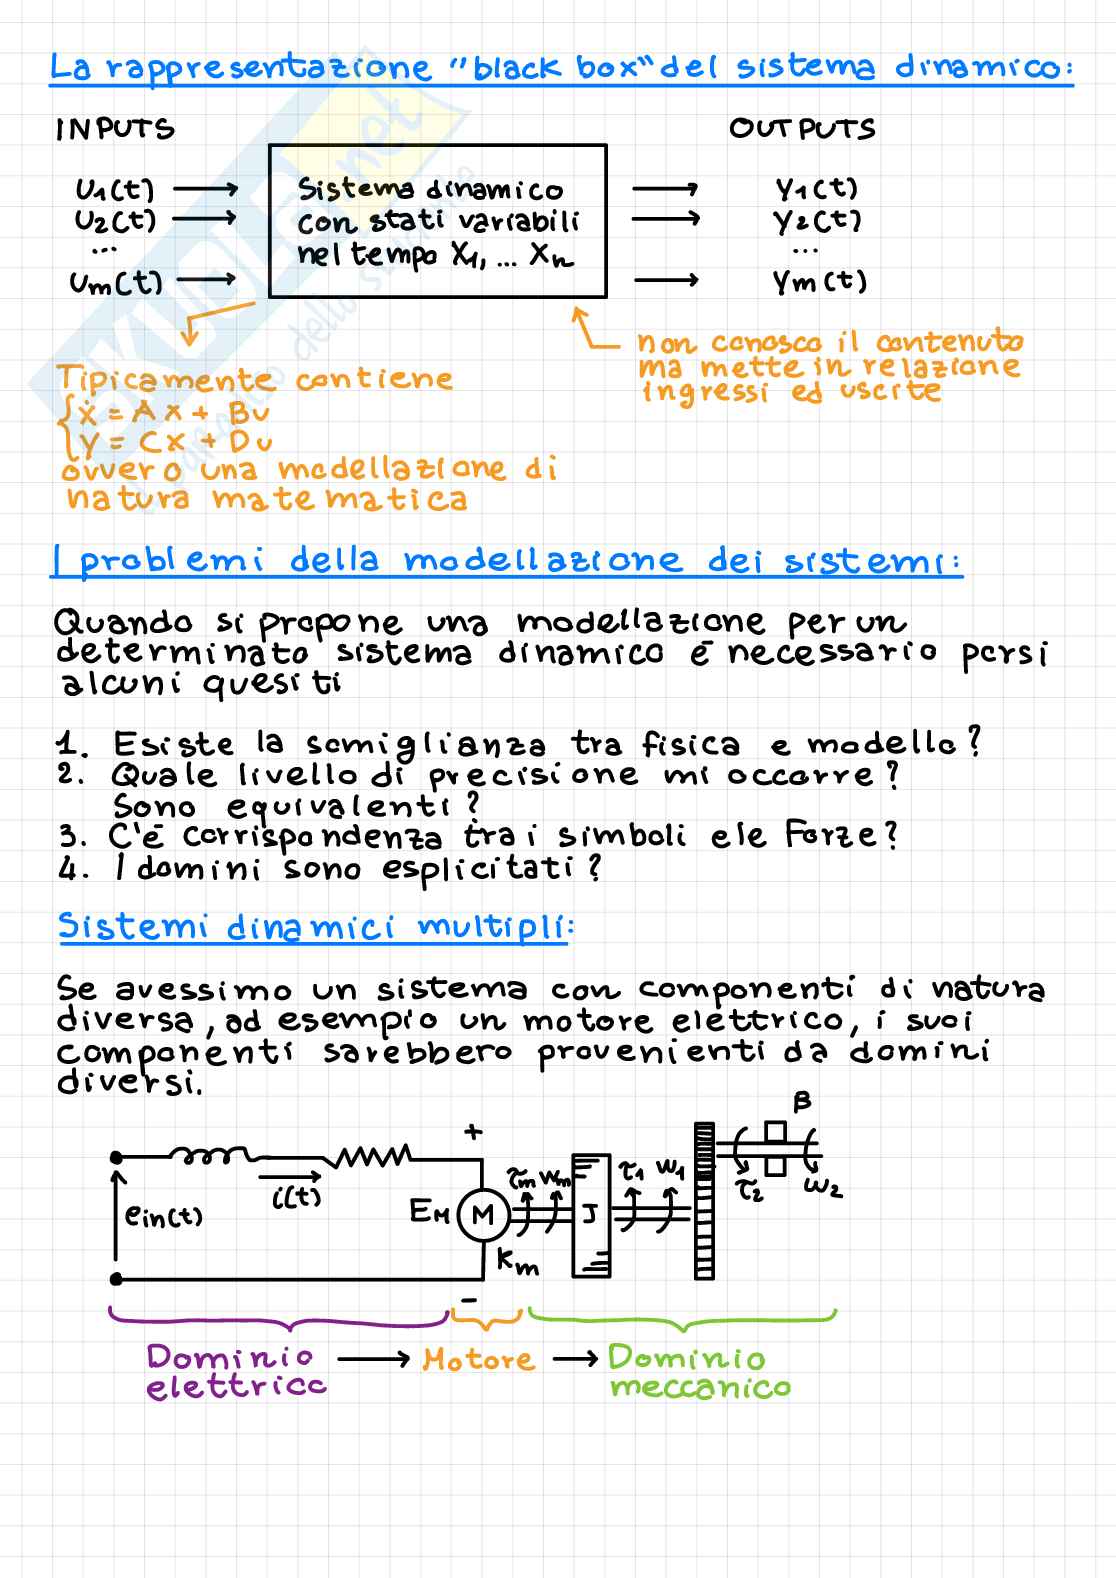 La rappresentazione "black box" del sistema dinamico:
INPUTS
OUTPUTS
U1(t)
U2(t)
...
Um(t)
Sistema dinamico
con stati variabili
nel tempo X1, ... Xn
Y1(t)
Y2(t)
...
Ym(t)
non conosco il contenuto
ma mette in relazione
ingressi ed uscite
Tipicamente contiene
ẋ = Ax + Bu
y = Cx + Du
ovvero una modellazione di
natura matematica
I problemi della modellazione dei sistemi:
Quando si propone una modellazione per un
determinato sistema dinamico è necessario porsi
alcuni quesiti
1. Esiste la somiglianza tra fisica e modello?
2. Quale livello di precisione mi occorre?
Sono equivalenti?
3. C'è corrispondenza tra i simboli e le Forze?
4. I domini sono esplicitati?
Sistemi dinamici multipli:
Se avessimo un sistema con componenti di natura
diversa, ad esempio un motore elettrico, i suoi
componenti sarebbero provenienti da domini
diversi.
+
ein(t)
i(t)
EM
M
Km
-
τm ωm
J
τ1 ω1
β
τ2
ω2
Dominio
elettrico
Motore
Dominio
meccanico
SKUOLA.net